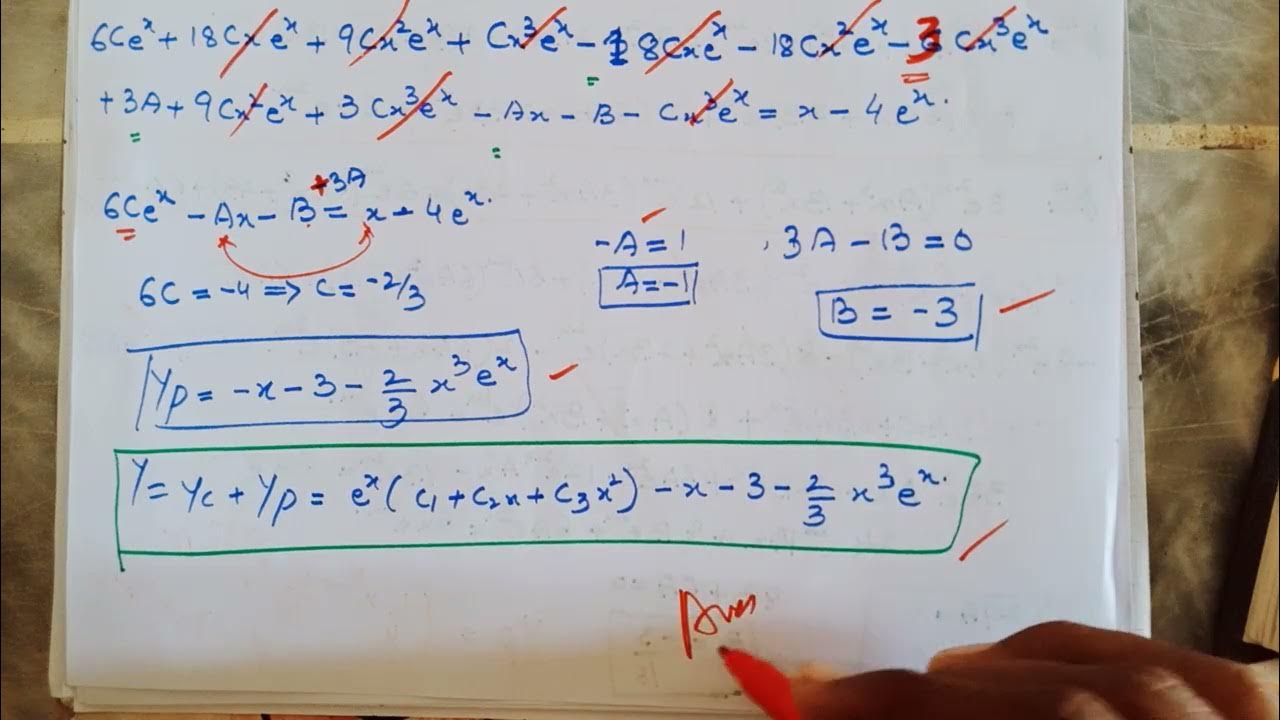 6Ce^x + 18Cxe^x + 9Cx²e^x + Cx³e^x - 18Cxe^x - 18Cx²e^x - 3Cx³e^x
+ 3A + 9Cx²e^x + 3Cx³e^x - Ax - B - Cx³e^x = x - 4e^x.
6Ce^x - Ax - B + 3A = x - 4e^x.
-A = 1 , 3A - B = 0
6C = -4 => C = -2/3 A = -1 B = -3
Yp = -x - 3 - 2/3 x³e^x
Y = Yc + Yp = e^x (C₁ + C₂x + C₃x²) - x - 3 - 2/3 x³e^x.
Ans